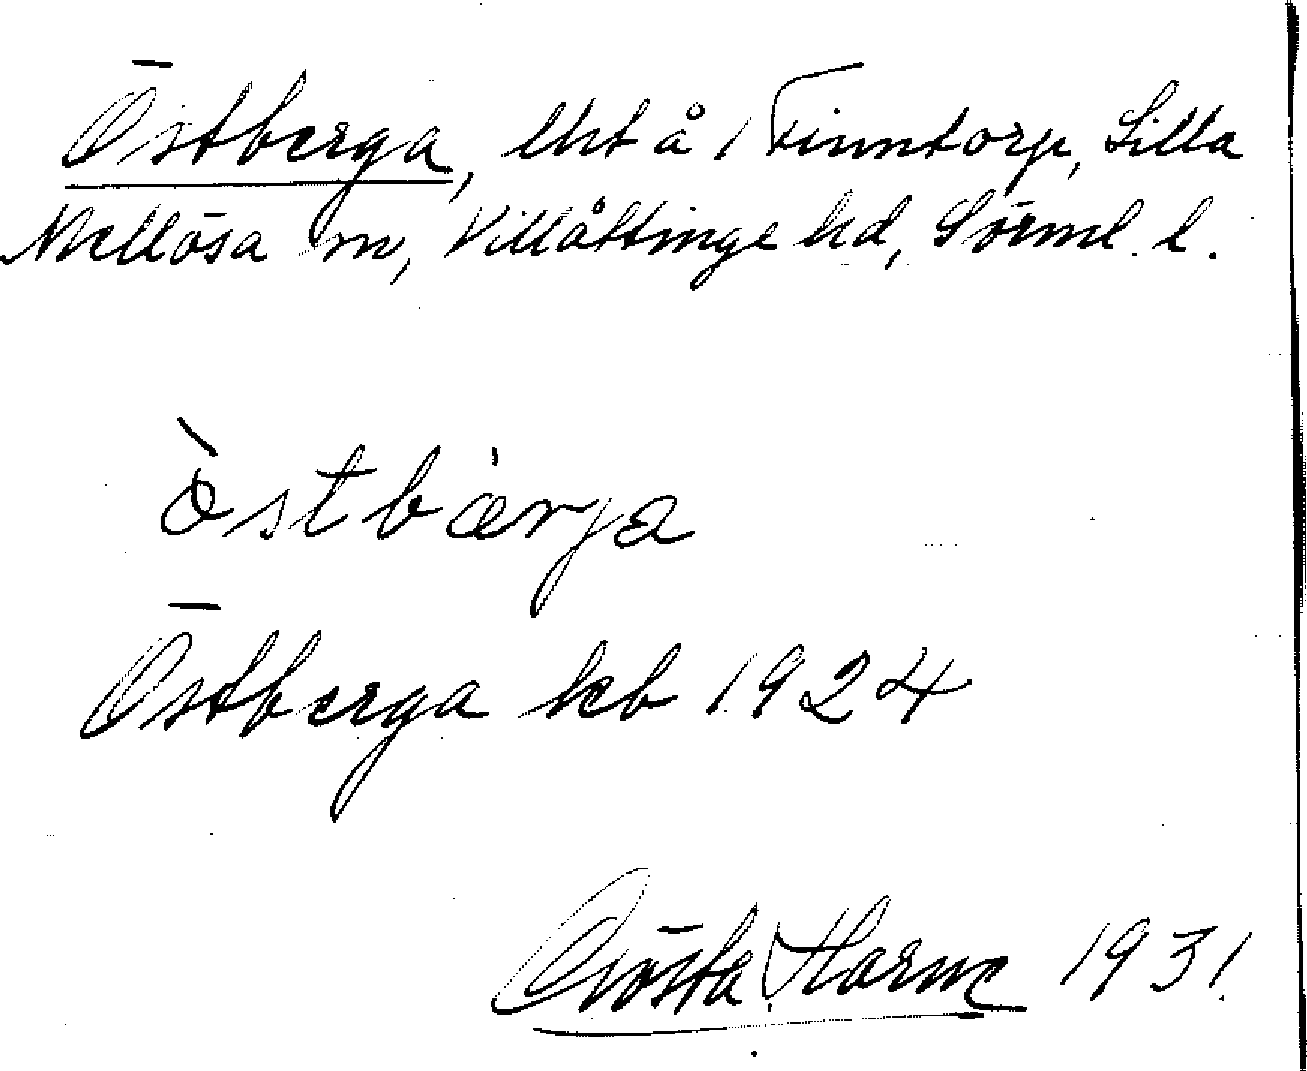 Östberga, lht å 1 Finntorp, Lilla
Mellösa sn, Villåttinge hd, Sörml. l.
òstbärja
Östberga kb 1924
Gösta Harne 1931.